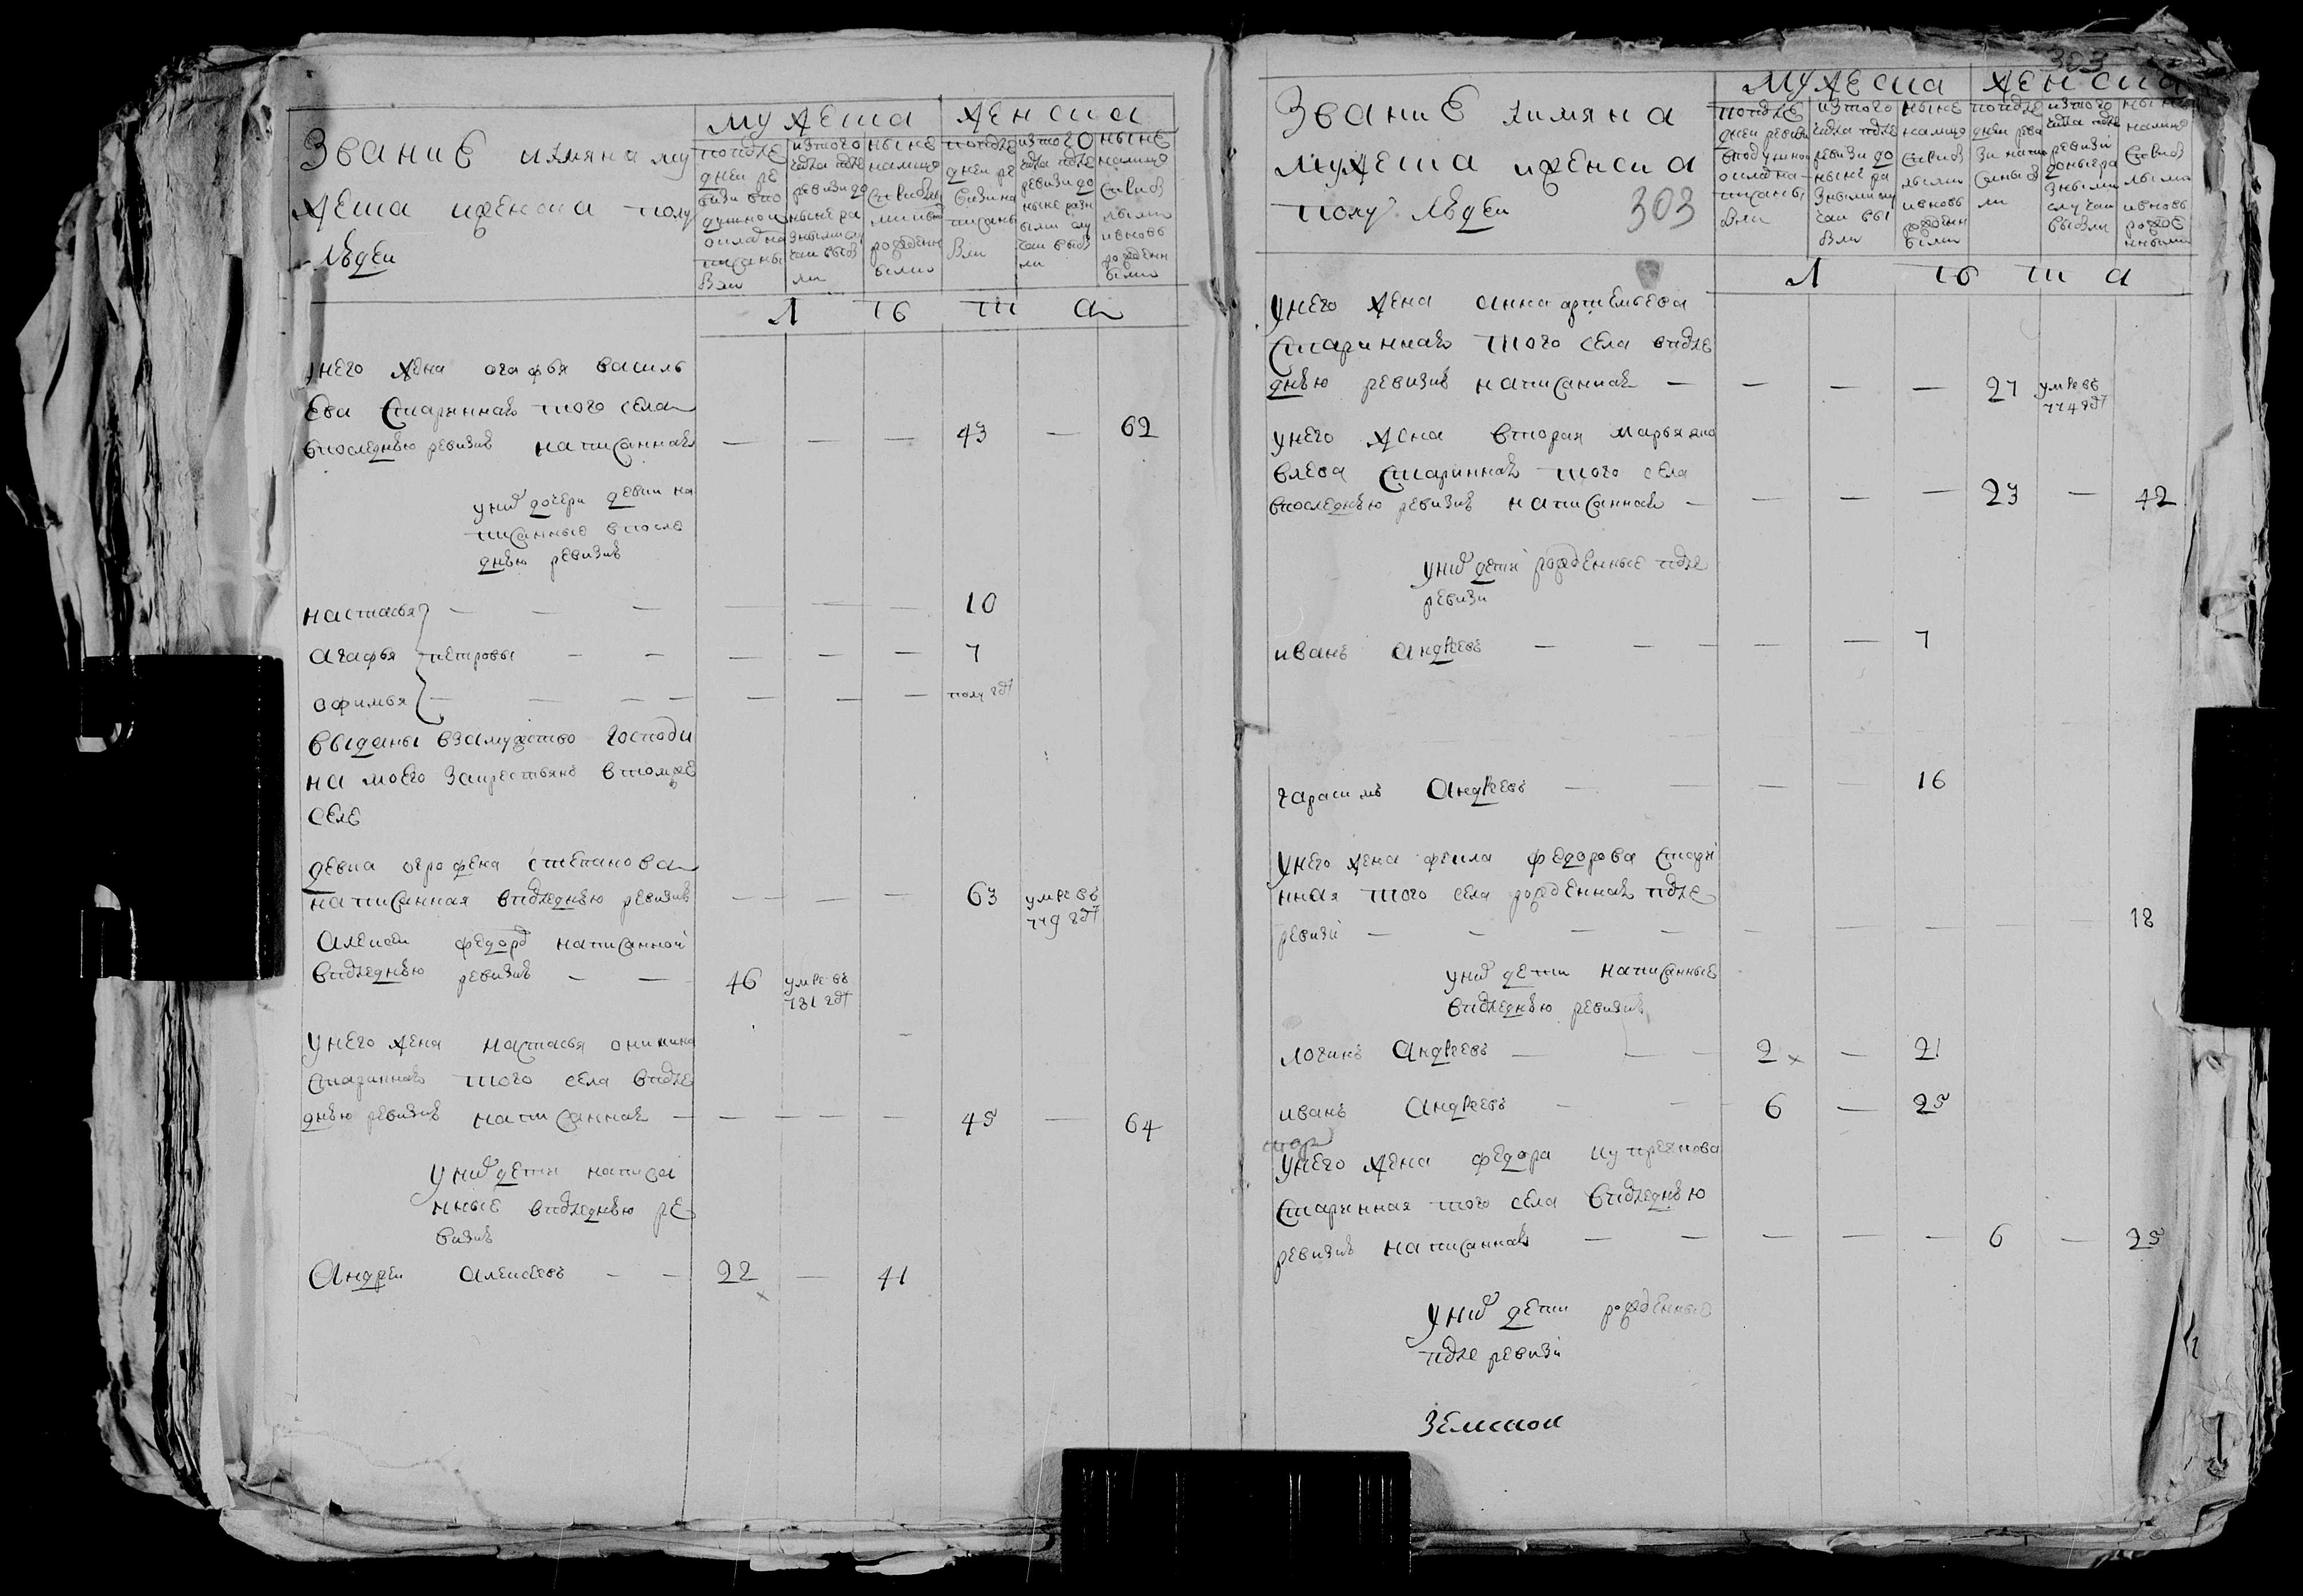 Звание иимяна му
жеска иженска полу
людеи
мужеска женска
по последнеи ревизи в подушнои оклад написаны были
ис того числа после ревизи до ныне разными случаи выбыли
ныне налицо с прибылыми и вновь рожденными
по последнеи ревизи написаны были
ис того числа после ревизи до ныне разными случаи выбыли
ныне налицо с прибылыми и вновь рожденными
л ѣ т а
унего жена огафья василь
ева стариннаѣ того села
впоследнюю ревизию написаннаѣ — — — 43 — 62
уних дочери девки на
писанные впосле
днюю ревизию
настасья — — — — — — 10
агафья петровы — — — — — 7
офимья — — — — — — — полу году
выданы взамужство господи
на моего закрестьянъ втомже
селе
девка огрофена степанова
написанная впоследнюю ревизию — — — 63 умре въ
779 году
Алексеи федоров написанной
впоследнюю ревизию — — 46 умре въ
781 году
унего жена настасья
стариннаѣ того села впосле
днюю ревизию написаннаѣ — — — — — 45 — 64
уних дети написа
нные впоследнюю ре
визию
Андреи Алексеевъ — — 22 — 41
303
Звание иимяна
мужеска иженска
полу людеи 303
мужеска женска
по последнеи ревизи в подушнои оклад написаны были
ис того числа после ревизи до ныне разными случаи выбыли
ныне налицо с прибылыми и вновь рожденными
по последнеи ревизи написаны были
ис того числа после ревизи до ныне разными случаи выбыли
ныне налицо с прибылыми и вновь рожденными
л ѣ т а
унего жена анна артемьева
стариннаѣ того села впосле
днюю ревизию написаннаѣ — — — — 27 умре въ
774 году
унего жена вторая марья яко
влева стариннаѣ того села
впоследнюю ревизию написаннаѣ — — — — 23 — 42
уних дети рожденные после
ревизи
иванъ Андреевъ — — — — — 7
гарасимъ Андреевъ — — — — 16
унего жена фекла федорова стари
нная того села рожденнаѣ после
ревизи — — — — — — — — — 18
уних дети написанные
впоследнюю ревизию
логинъ Андреевъ — — — 2 — 21
иванъ Андреевъ — — 6 — 25
унего жена федора куприянова
старинная того села впоследнюю
ревизию написаннаѣ — — — — — 6 — 25
уних дети рожденные
после ревизи
Земскои